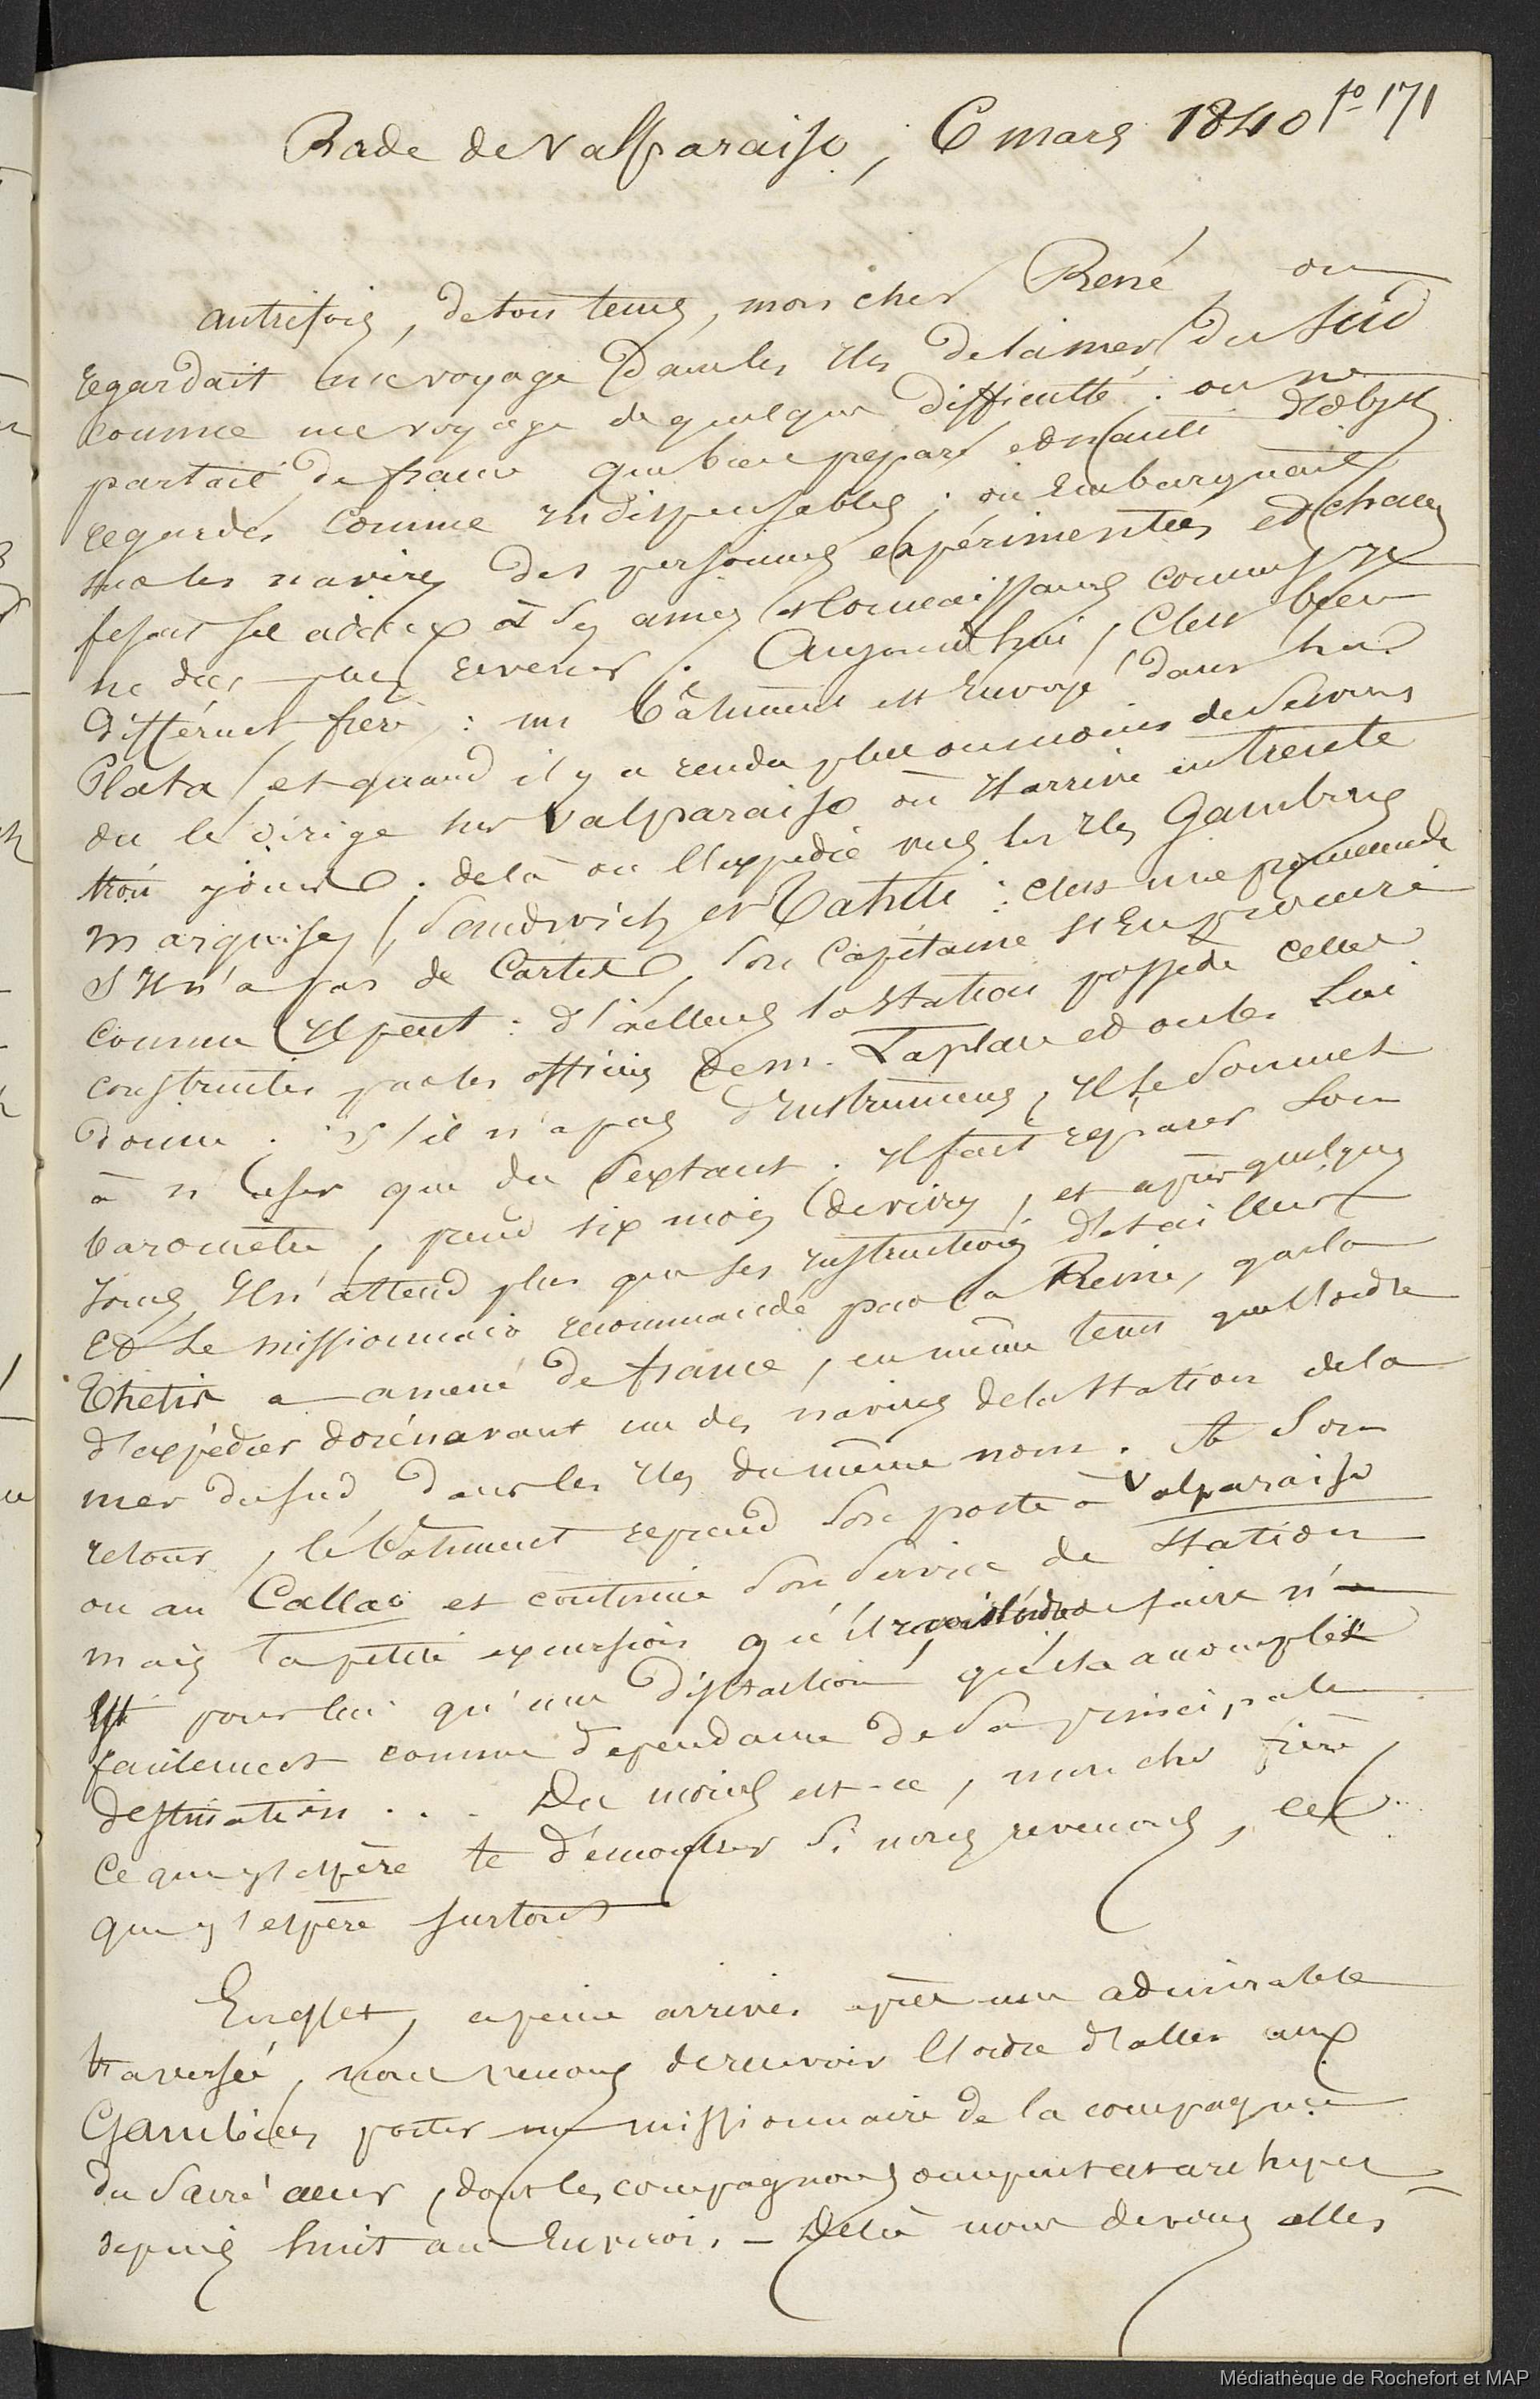 fo 171
Rade de Valparaiso, 6 mars 1840
autrefois, de tous tems, mon cher René, on
regardait un voyage dans les Iles de la mer du Sud
comme un voyage de quelque difficulté : on ne
partait de france que bien preparé et nanti d'objets
regardés comme indispensables ; on embarquait
sur les navires des personnes expérimentées et chacun
fesait ses adieux à ses amis et connaissances comme s'il
ne dut plus revenir. Aujourd'hui, c'est bien
différent, frère : un bâtiment est envoyé dans la
Plata, et quand il y a rendu plus ou moins de services
on le dirige sur Valparaiso où il arrive en trente
trois jours. de là on l'expédie vers les Iles Gambier,
marquises, Sandwich et Tahiti : c'est une promenade
S'il n'a pas de Cartes, son capitaine s'en procure
comme il peut : d'ailleurs la station possède celles
construites par les officiers de m. Laplace et on les lui
donne. S'il n'a pas d'instrumens, il se soumet
à n'user que du sextant. il fait réparer son
baromètre, prend six mois de vivres, et après quelques
jours, il n'attend plus que ses instructions d'ailleurs
et le missionnaire recommandé par la Reine, que la
Thétis a amené de france, en même tems que l'ordre
d'expédier dorénavant un des navires de la station de la
mer du sud, dans les Iles du même nom. A son
retour, le bâtiment reprend son poste à Valparaiso
ou au Callao et continue son service de station
mais la petite excursion qu'il reçoit l'ordre de faire n'
est pour lui qu'une distraction qu'il a accomplie
facilement comme dépendance de sa principale
destination . . . Du moins est-ce, mon cher frère,
ce que j'espère te démontrer si nous revenons, ce
que j'espère surtout
En effet, à peine arrivés après une admirable
traversée, nous venons de recevoir l'ordre d'aller aux
Gambier porter un missionnaire de la compagnie
du Sacré cœur, dont les compagnons occupent cet archipel
depuis huit ans environ. – De là nous devons aller
Médiathèque de Rochefort et MAP